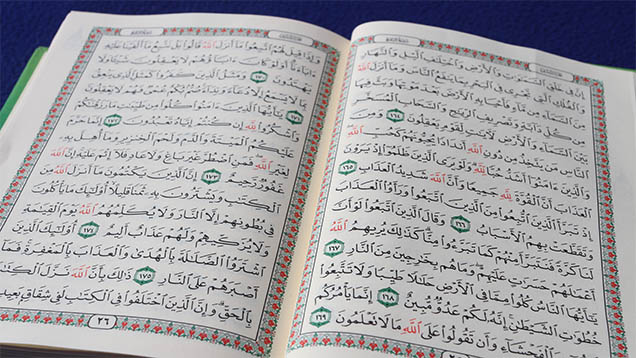 إِنَّ فِي خَلْقِ السَّمَٰوَٰتِ وَالْأَرْضِ وَاخْتِلَٰفِ الَّيْلِ وَالنَّهَارِ
وَالْفُلْكِ الَّتِي تَجْرِي فِي الْبَحْرِ بِمَا يَنفَعُ النَّاسَ وَمَآ أَنزَلَ اللَّهُ
مِنَ السَّمَآءِ مِن مَّآءٍ فَأَحْيَا بِهِ الْأَرْضَ بَعْدَ مَوْتِهَا وَبَثَّ فِيهَا
مِن كُلِّ دَآبَّةٍ وَتَصْرِيفِ الرِّيَٰحِ وَالسَّحَابِ الْمُسَخَّرِ
بَيْنَ السَّمَآءِ وَالْأَرْضِ لَءَايَٰتٍ لِّقَوْمٍ يَعْقِلُونَ ١٦٤ وَمِنَ
النَّاسِ مَن يَتَّخِذُ مِن دُونِ اللَّهِ أَندَادًا يُحِبُّونَهُمْ كَحُبِّ اللَّهِ
وَالَّذِينَ ءَامَنُوٓا أَشَدُّ حُبًّا لِّلَّهِ وَلَوْ يَرَى الَّذِينَ ظَلَمُوٓا إِذْ يَرَوْنَ
الْعَذَابَ أَنَّ الْقُوَّةَ لِلَّهِ جَمِيعًا وَأَنَّ اللَّهَ شَدِيدُ الْعَذَابِ ١٦٥
إِذْ تَبَرَّأَ الَّذِينَ اتُّبِعُوا مِنَ الَّذِينَ اتَّبَعُوا وَرَأَوُا الْعَذَابَ
وَتَقَطَّعَتْ بِهِمُ الْأَسْبَابُ ١٦٦ وَقَالَ الَّذِينَ اتَّبَعُوا لَوْ أَنَّ
لَنَا كَرَّةً فَنَتَبَرَّأَ مِنْهُمْ كَمَا تَبَرَّءُوا مِنَّا كَذَٰلِكَ يُرِيهِمُ اللَّهُ
أَعْمَٰلَهُمْ حَسَرَٰتٍ عَلَيْهِمْ وَمَا هُم بِخَٰرِجِينَ مِنَ النَّارِ ١٦٧
يَٰٓأَيُّهَا النَّاسُ كُلُوا مِمَّا فِي الْأَرْضِ حَلَٰلًا طَيِّبًا وَلَا تَتَّبِعُوا
خُطُوَٰتِ الشَّيْطَٰنِ إِنَّهُ لَكُمْ عَدُوٌّ مُّبِينٌ ١٦٨ إِنَّمَا يَأْمُرُكُم
بِالسُّوٓءِ وَالْفَحْشَآءِ وَأَن تَقُولُوا عَلَى اللَّهِ مَا لَا تَعْلَمُونَ ١٦٩
وَإِذَا قِيلَ لَهُمُ اتَّبِعُوا مَآ أَنزَلَ اللَّهُ قَالُوا بَلْ نَتَّبِعُ مَآ أَلْفَيْنَا عَلَيْهِ
ءَابَآءَنَآ أَوَلَوْ كَانَ ءَابَآؤُهُمْ لَا يَعْقِلُونَ شَيْـًٔا وَلَا
يَهْتَدُونَ ١٧٠ وَمَثَلُ الَّذِينَ كَفَرُوا كَمَثَلِ الَّذِي يَنْعِقُ
بِمَا لَا يَسْمَعُ إِلَّا دُعَآءً وَنِدَآءً صُمٌّۢ بُكْمٌ عُمْيٌ فَهُمْ لَا يَعْقِلُونَ
١٧١ يَٰٓأَيُّهَا الَّذِينَ ءَامَنُوا كُلُوا مِن طَيِّبَٰتِ مَا رَزَقْنَٰكُمْ
وَاشْكُرُوا لِلَّهِ إِن كُنتُمْ إِيَّاهُ تَعْبُدُونَ ١٧٢ إِنَّمَا حَرَّمَ
عَلَيْكُمُ الْمَيْتَةَ وَالدَّمَ وَلَحْمَ الْخِنزِيرِ وَمَآ أُهِلَّ بِهِ
لِغَيْرِ اللَّهِ فَمَنِ اضْطُرَّ غَيْرَ بَاغٍ وَلَا عَادٍ فَلَآ إِثْمَ عَلَيْهِ إِنَّ اللَّهَ
غَفُورٌ رَّحِيمٌ ١٧٣ إِنَّ الَّذِينَ يَكْتُمُونَ مَآ أَنزَلَ اللَّهُ مِنَ
الْكِتَٰبِ وَيَشْتَرُونَ بِهِ ثَمَنًا قَلِيلًا أُولَٰٓئِكَ مَا يَأْكُلُونَ
فِي بُطُونِهِمْ إِلَّا النَّارَ وَلَا يُكَلِّمُهُمُ اللَّهُ يَوْمَ الْقِيَٰمَةِ
وَلَا يُزَكِّيهِمْ وَلَهُمْ عَذَابٌ أَلِيمٌ ١٧٤ أُولَٰٓئِكَ الَّذِينَ
اشْتَرَوُا الضَّلَٰلَةَ بِالْهُدَىٰ وَالْعَذَابَ بِالْمَغْفِرَةِ فَمَآ
أَصْبَرَهُمْ عَلَى النَّارِ ١٧٥ ذَٰلِكَ بِأَنَّ اللَّهَ نَزَّلَ الْكِتَٰبَ
بِالْحَقِّ وَإِنَّ الَّذِينَ اخْتَلَفُوا فِي الْكِتَٰبِ لَفِي شِقَاقٍۭ بَعِيدٍ
٢٦